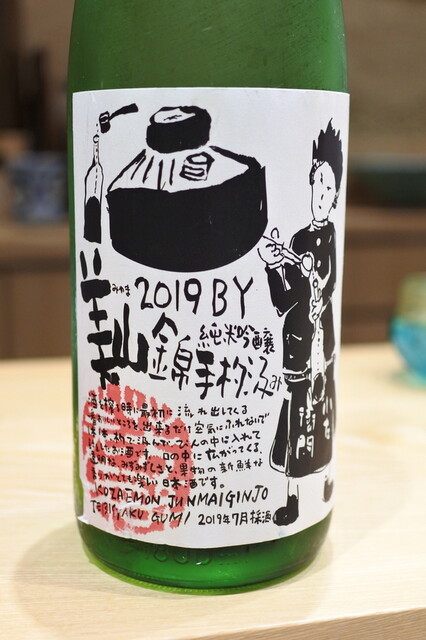 2019BY
みやま
美山錦
純米吟醸
手杓汲み
小左衛門
酒を搾る時に最初に流れ出てくる
出来るだけ空気にふれないで
杓で汲んでびんの中に入れて
お酒です。口の中に広がってくる、
透明な、みずみずしさと、果物の新鮮な
とても楽しい日本酒です。
KOZAEMON JUNMAIGINJO
TEBIPYAKU GUMI 2019年7月採酒